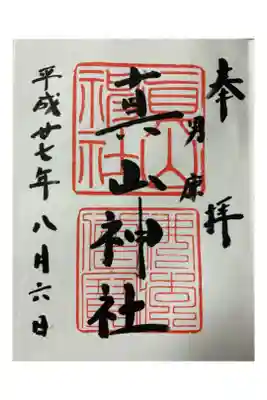 奉拝
男鹿
真山神社
真山神社
平成廿七年八月六日